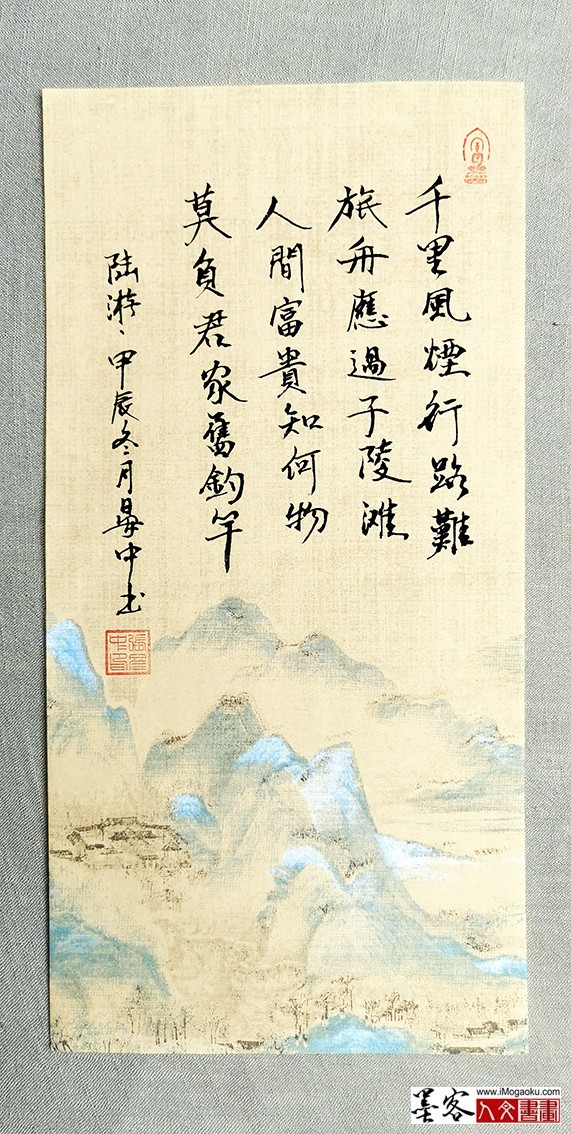 千里風煙行路難
旅舟應過子陵灘
人間富貴知何物
莫負君家舊釣竿
陸游、甲辰冬月鼻中书
墨客
www.iMogaoku.com
人文書畫